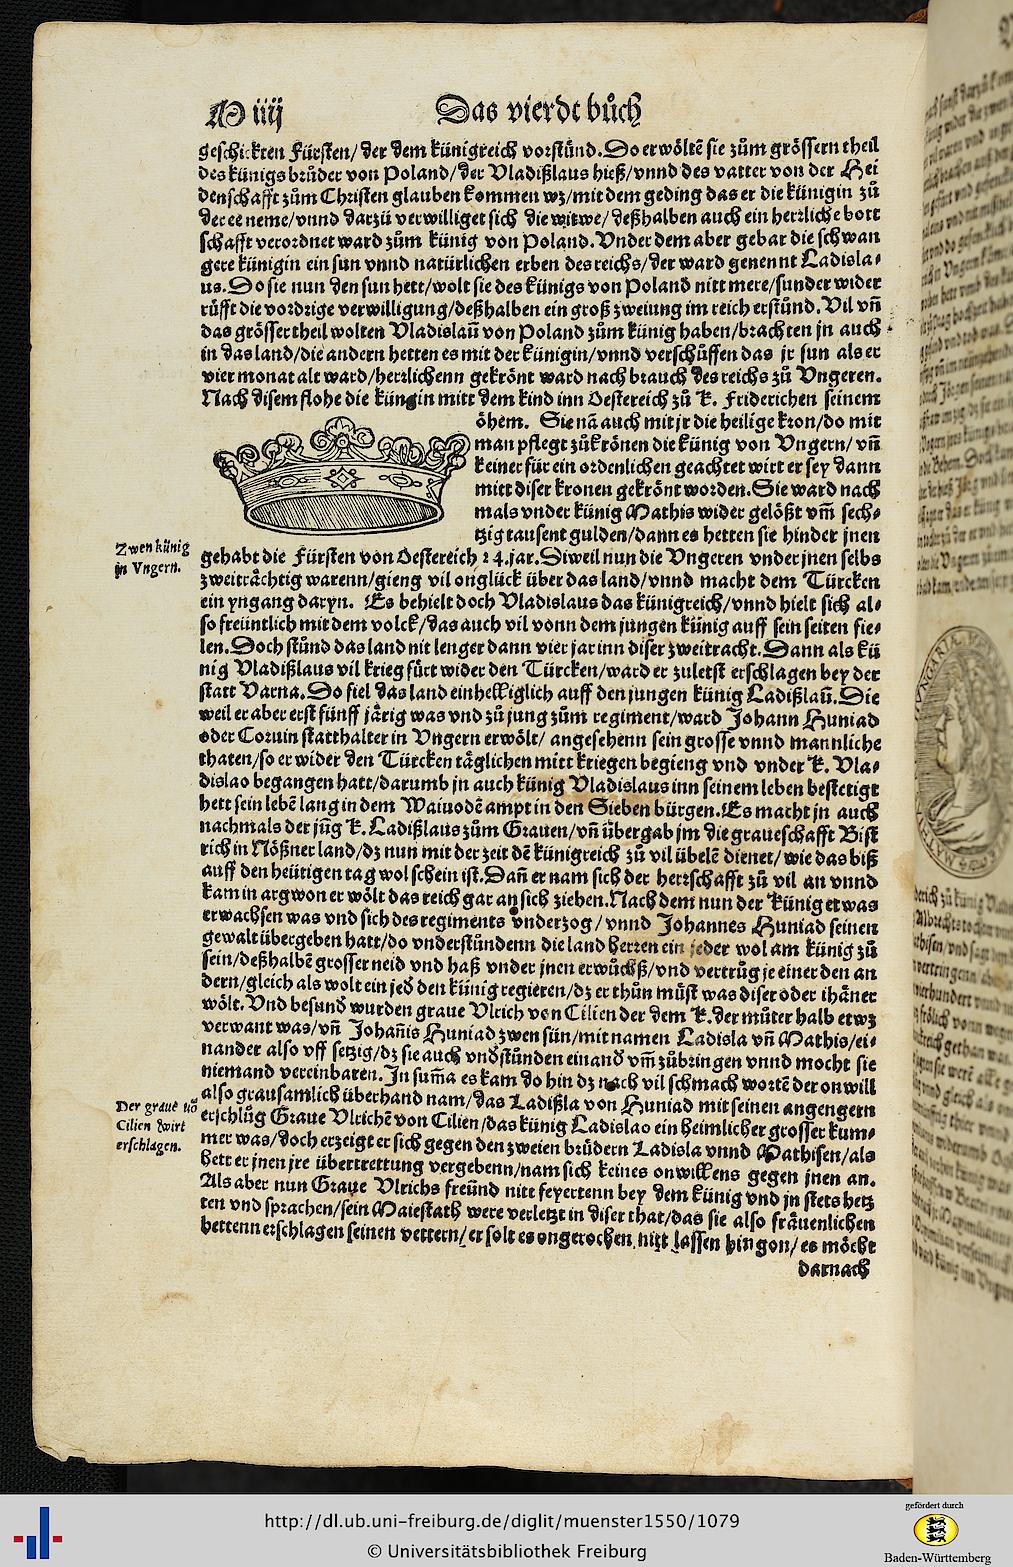 M iiij Das vierdt bůch
geschickten Fürsten/ der dem künigreich vorstůnd. Do erwöltē sie zům grössern theil
des künigs brůder von Poland/ der Vladißlaus hieß/ vnnd des vatter von der Hei
denschafft zům Christen glauben kommen wz/ mit dem geding das er die künigin zů
der ee neme/ vnnd darzů verwilliget sich die witwe/ deßhalben auch ein herrliche bott
schafft verordnet ward zům künig von Poland. Vnder dem aber gebar die schwan
gere künigin ein sun vnnd natürlichen erben des reichs/ der ward genennt Ladisla-
us. Do sie nun den sun hett/ wolt sie des künigs von Poland nitt mere/ sunder wider
růfft die vordrige verwilligung/ deßhalben ein groß zweiung im reich erstůnd. Vil vñ
das grösser theil wolten Vladislaū von Poland zům künig haben/ brachten jn auch
in das land/ die andern hetten es mit der künigin/ vnnd verschůffen das jr sun als er
vier monat alt ward/ herrlichenn gekrönt ward nach brauch des reichs zů Vngeren.
Nach disem flohe die küngin mitt dem kind inn Oestereich zů K. Friderichen seinem
öhem. Sie nā auch mit jr die heilige kron/ do mit
man pflegt zů krönen die künig von Vngern/ vñ
keiner für ein ordenlichen geachtet wirt er sey dann
mitt diser kronen gekrönt worden. Sie ward nach
mals vnder künig Mathis wider gelößt vm̄ sech-
tzig tausent gulden/ dann es hetten sie hinder jnen
Zwen künig
in Vngern.
gehabt die Fürsten von Oestereich 24. jar. Diweil nun die Vngeren vnder jnen selbs
zweiträchtig warenn/ gieng vil onglück über das land/ vnnd macht dem Türcken
ein yngang daryn. Es behielt doch Vladislaus das künigreich/ vnnd hielt sich al-
so freüntlich mit dem volck/ das auch vil vonn dem jungen künig auff sein seiten fie-
len. Doch stůnd das land nit lenger dann vier jar inn diser zweitracht. Dann als kü
nig Vladißlaus vil krieg fürt wider den Türcken/ ward er zuletst erschlagen bey der
statt Varna. Do fiel das land einhelliglich auff den jungen künig Ladißlaū. Die
weil er aber erst fünff järig was vnd zů jung zům regiment/ ward Johann Huniad
oder Coruin statthalter in Vngern erwölt/ angesehenn sein grosse vnnd mannliche
thaten/ so er wider den Türcken täglichen mitt kriegen begieng vnd vnder K. Vla-
dislao begangen hatt/ darumb jn auch künig Vladislaus inn seinem leben bestetigt
hett sein lebē lang in dem Waiuodē ampt in den Sieben bürgen. Es macht jn auch
nachmals der jūg K. Ladißlaus zům Grauen/ vñ übergab jm die graueschafft Bist
rich in Nößner land/ dz nun mit der zeit dē künigreich zů vil übelē dienet/ wie das biß
auff den heütigen tag wol schein ist. Dañ er nam sich der herrschafft zů vil an vnnd
kam in argwon er wölt das reich gar an sich ziehen. Nach dem nun der künig etwas
erwachsen was vnd sich des regiments vnderzog/ vnnd Johannes Huniad seinen
gewalt übergeben hatt/ do vnderstůndenn die land herren ein jeder wol am künig zů
sein/ deßhalbē grosser neid vnd haß vnder jnen erwůchß/ vnd vertrůg je einer den an
dern/ gleich als wolt ein jed den künig regieren/ dz er thůn můst was diser oder ihäner
wölt. Vnd besund wurden graue Vlrich von Cilien der dem K. der můter halb etwz
verwant was/ vñ Johañis Huniad zwen sün/ mit namen Ladisla vñ Mathis/ ei-
nander also vff setzig/ dz sie auch vndstůnden einand vm̄ zůbringen vnnd mocht sie
niemand vereinbaren. In sum̄a es kam do hin dz nach vil schmach wortē der onwill
Der graue vō
Cilien wirt
erschlagen.
also grausamlich überhand nam/ das Ladißla von Huniad mit seinen angengern
erschlůg Graue Vlrichē von Cilien/ das künig Ladislao ein heimlicher grosser kum-
mer was/ doch erzeigt er sich gegen den zweien brüdern Ladisla vnnd Mathisen/ als
hett er jnen jre übertrettung vergebenn/ nam sich keines onwillens gegen jnen an.
Als aber nun Graue Vlrichs freünd nitt feyertenn bey dem künig vnd jn stets hetz
ten vnd sprachen/ sein Maiestath were verletzt in diser that/ das sie also fräuenlichen
hettenn erschlagen seinen vettern/ er solt es ongerochen nitt lassen hin gon/ es möcht
darnach
http://dl.ub.uni-freiburg.de/diglit/muenster1550/1079
© Universitätsbibliothek Freiburg
gefördert durch
Baden-Württemberg